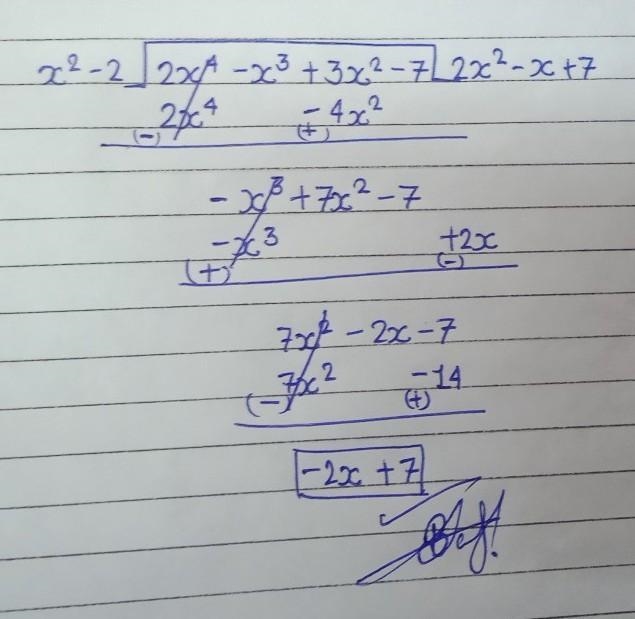 x² - 2 | 2x⁴ - x³ + 3x² - 7 | 2x² - x + 7
2x⁴ - 4x²
(-) (+)
- x³ + 7x² - 7
- x³ +2x
(+) (-)
7x² - 2x - 7
7x² - 14
(-) (+)
-2x + 7